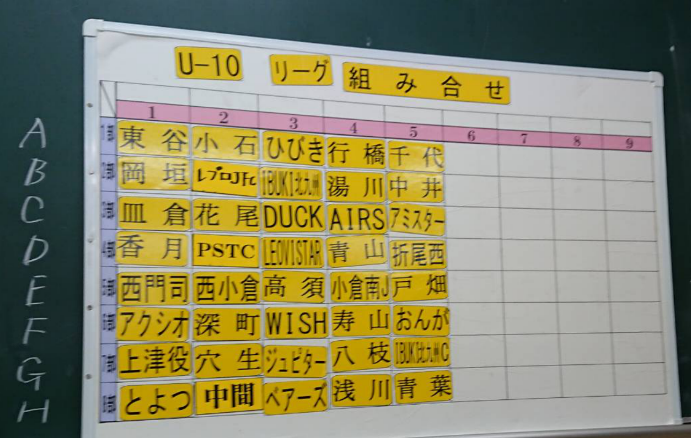 U-10 リーグ 組み合せ
1 2 3 4 5 6 7 8 9
A 東谷 小石 ひびき 行橋 千代
B 岡垣 レプロJfc IBUKI北九州 湯川 中井
C 皿倉 花尾 DUCK AIRS アミスター
D 香月 PSTC LEOVISTAR 青山 折尾西
E 西門司 西小倉 高須 小倉南J 戸畑
F アクシオ 深町 WISH 寿山 おんが
G 上津役 穴生 ジュピター 八枝 IBUKI北九州C
H とよつ 中間 ベアーズ 浅川 青葉